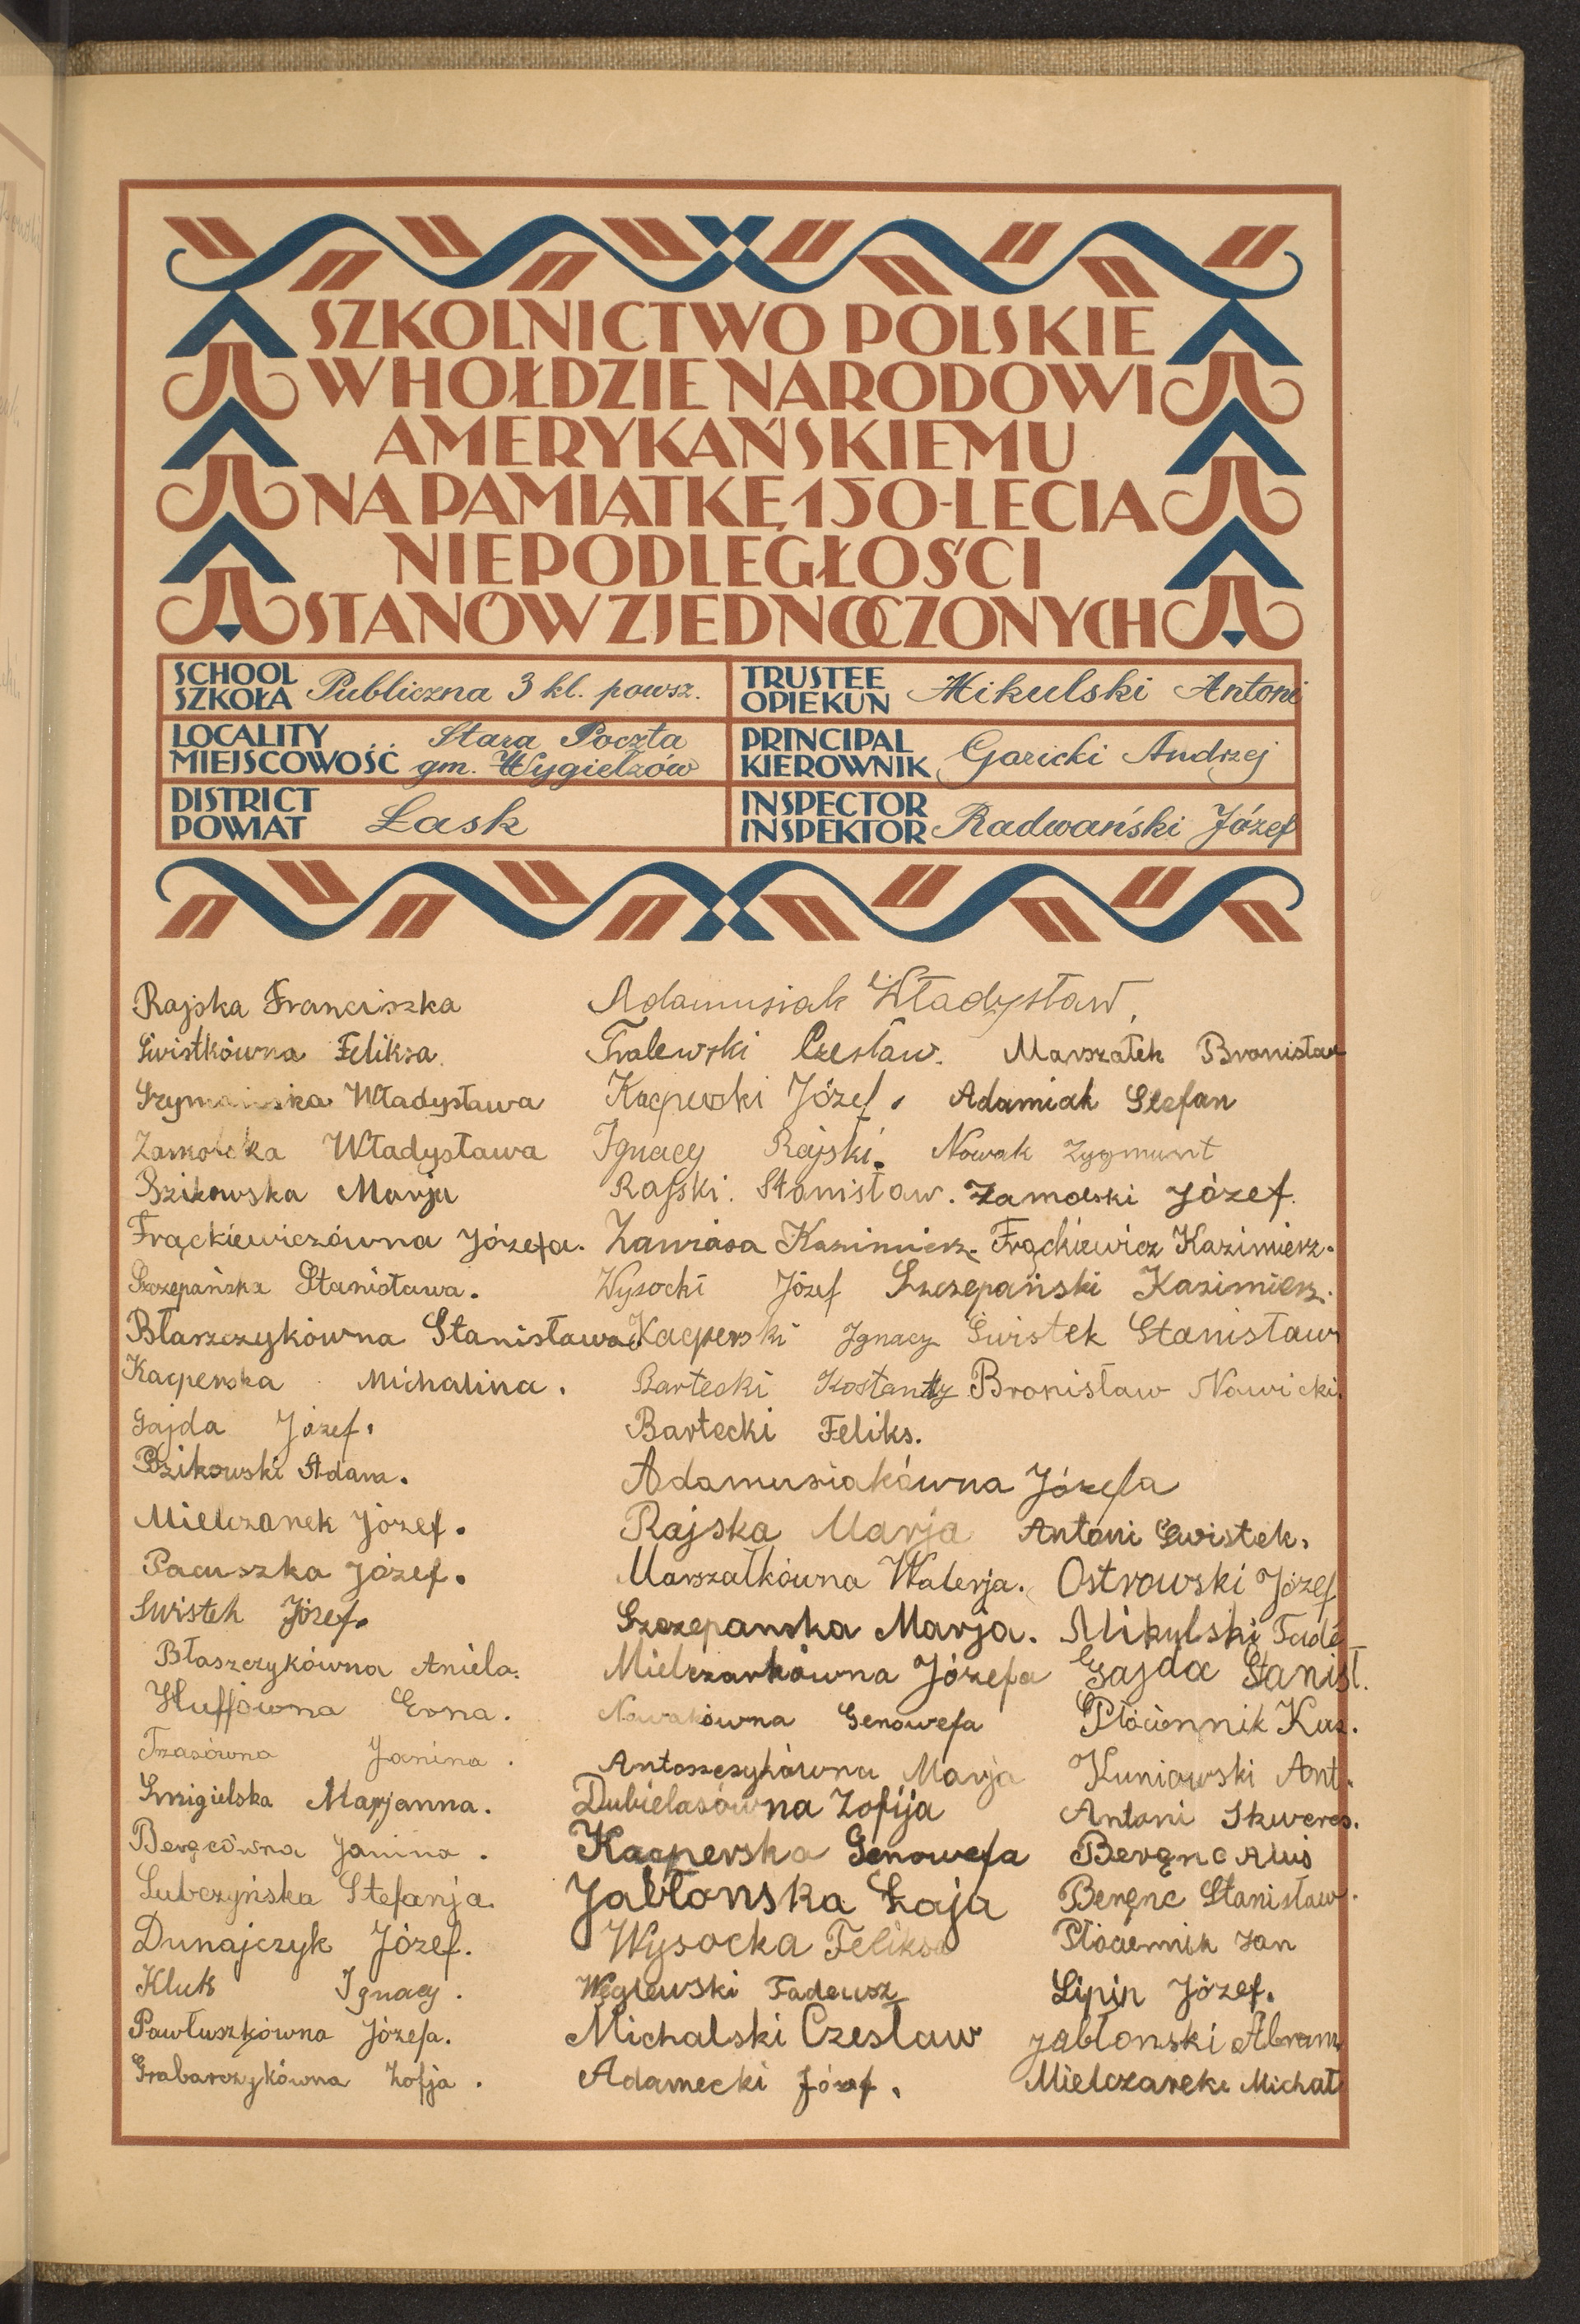 SZKOLNICTWO POLSKIE
W HOŁDZIE NARODOWI
AMERYKAŃSKIEMU
NA PAMIĄTKĘ 150-LECIA
NIEPODLEGŁOŚCI
STANÓW ZJEDNOCZONYCH
SCHOOL
SZKOŁA Publiczna 3 kl. powsz.
TRUSTEE
OPIEKUN Mikulski Antoni
LOCALITY
MIEJSCOWOŚĆ Stara Poczta
gm. Wygiełzów
PRINCIPAL
KIEROWNIK Garicki Andrzej
DISTRICT
POWIAT Łask
INSPECTOR
INSPEKTOR Radwański Józef
Rajska Franciszka Adamusiak Władysław,
Świstkówna Feliksa. Czesław. Marszałek Bronisław
Władysława Kacperski Józef. Adamiak Stefan
Władysława Ignacy Rajski. Nowak Zygmunt
Bzikowska Marja Rajski. Stanisław. Zamolski Józef.
Frąckiewiczówna Józefa. Zawiasa Kazimierz. Frąckiewicz Kazimierz.
Szczepańska Stanisława. Wysocki Józef Szczepański Kazimierz.
Błaszczykówna Stanisława Kacperski Ignacy Świstek Stanisław
Kacperska Michalina. Bartecki Kostanty Bronisław Nowicki.
Gajda Józef. Bartecki Feliks.
Bzikowski Adam. Adamusiakówna Józefa
Mielczarek Józef. Rajska Marja Antoni Świstek.
Pacuszka Józef. Marszałkówna Walerja. Ostrowski Józef
Świstek Józef. Szczepanska Marja. Mikulski Tade
Błaszczykówna Aniela. Mielczarkówna Józefa Gajda Stanisł.
Huffówna Erna. Nowakówna Genowefa Płóciennik Kaz.
Trzasówna Janina. Antoszczykówna Marja Kuniowski Ant.
Śmigielska Marjanna. Dubielasówna Zofija Antoni Skweres.
Janina. Kacperska Genowefa Beręnc
Lubczyńska Stefanja. Jabłonska Łaja Beręnc Stanisław.
Dunajczyk Józef. Wysocka Feliksa Płóciennik Jan
Kluk Ignacy. Węglewski Tadeusz Lipin Józef.
Pawłuszkówna Józefa. Michalski Czesław Jabłonski Abram
Grabarczykówna Zofja. Adamecki Józef. Mielczarek Michał